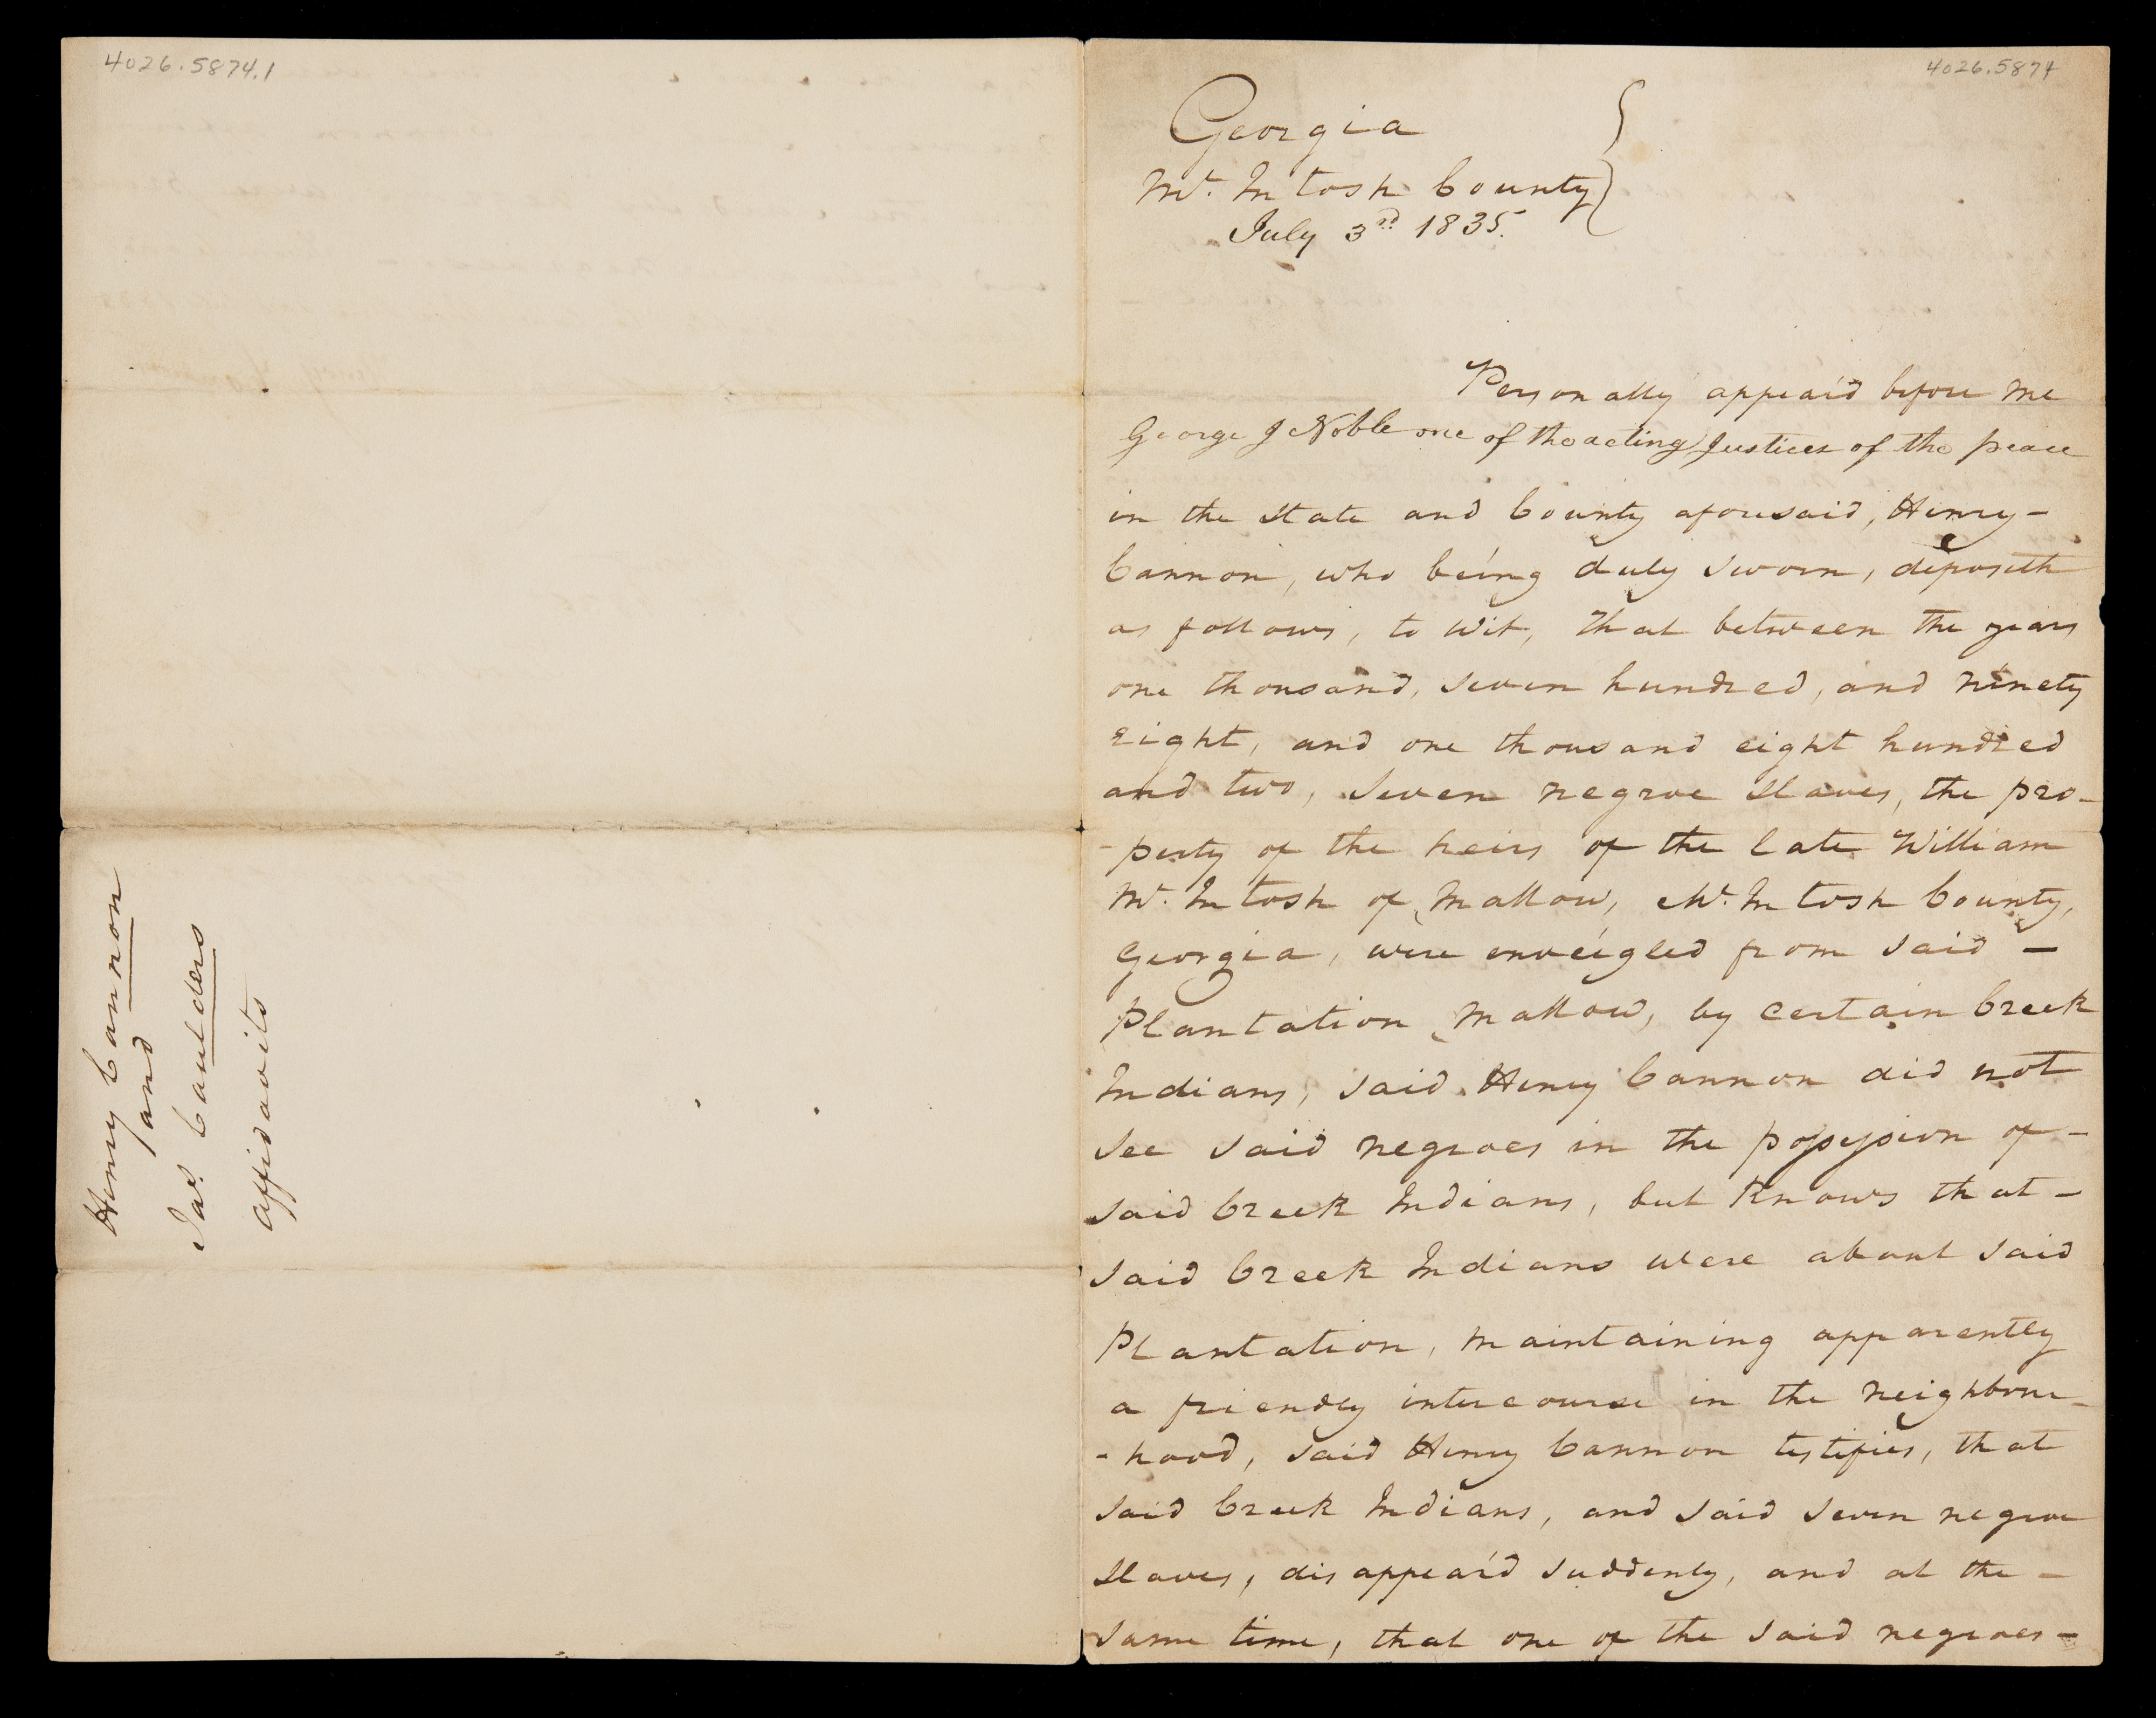 4026.5874.1
Henry Cannon
and
Jas. Caulders
affidavits
4026.5874
Georgia
Mc. In tosh County
July 3rd 1835.
Personally appear'd before me
George J Noble one of the acting Justices of the peace
in the state and County aforesaid, Henry -
Cannon, who being duly sworn, deposeth
as follows, to wit, that between the years
one thousand, seven hundred, and ninety
eight, and one thousand eight hundred
and two, seven negroe slaves, the pro-
-perty of the heirs of the late William
Mc. In tosh of Mallow, Mc. In tosh County,
Georgia, were enveigled from said -
Plantation Mallow, by certain Creek
Indians, said Henry Cannon did not
see said negroes in the possession of -
said Creek Indians, but Knows that -
said Creek Indians were about said
Plantation, maintaining apparently
a friendly intercourse in the neighbour-
-hood, said Henry Cannon testifies, that
said Creek Indians, and said seven negroe
slaves, disappear'd suddenly, and at the -
same time, that one of the said negroes -